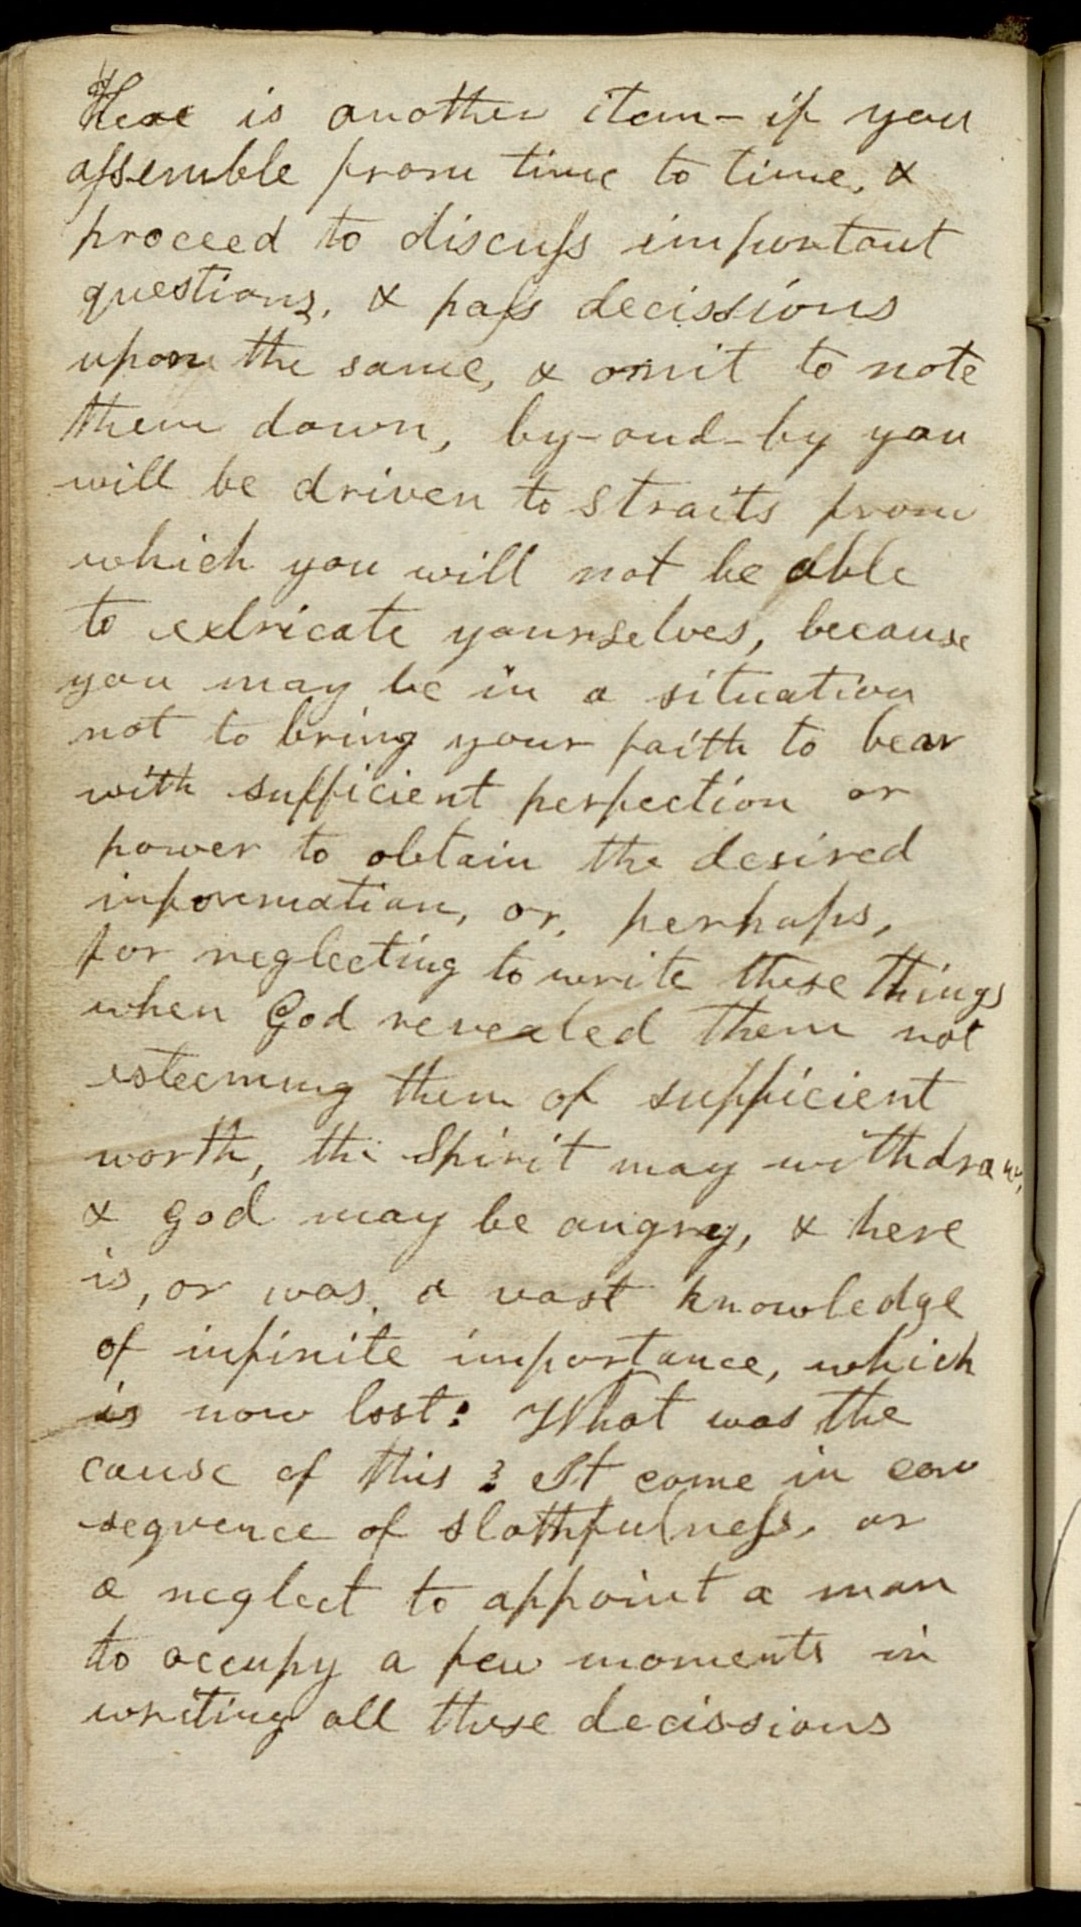 Here is another item— if you
assemble from time to time, &
proceed to discuss important
questions, & pass decissions
upon the same, & omit to note
them down, by-and-by you
will be driven to straits from
which you will not be able
to extricate yourselves, because
you may be in a situation
not to bring your faith to bear
with sufficient perfection or
power to obtain the desired
information, or, perhaps,
for neglecting to write these things
when God revealed them not
esteeming them of sufficient
worth, the Spirit may withdraw,
& god may be angry, & here
is, or was, a vast knowledge
of infinite importance, which
is now lost: What was the
cause of this? It came in con
sequence of slothfulness, or
a neglect to appoint a man
to occupy a few moments in
writing all these decissions